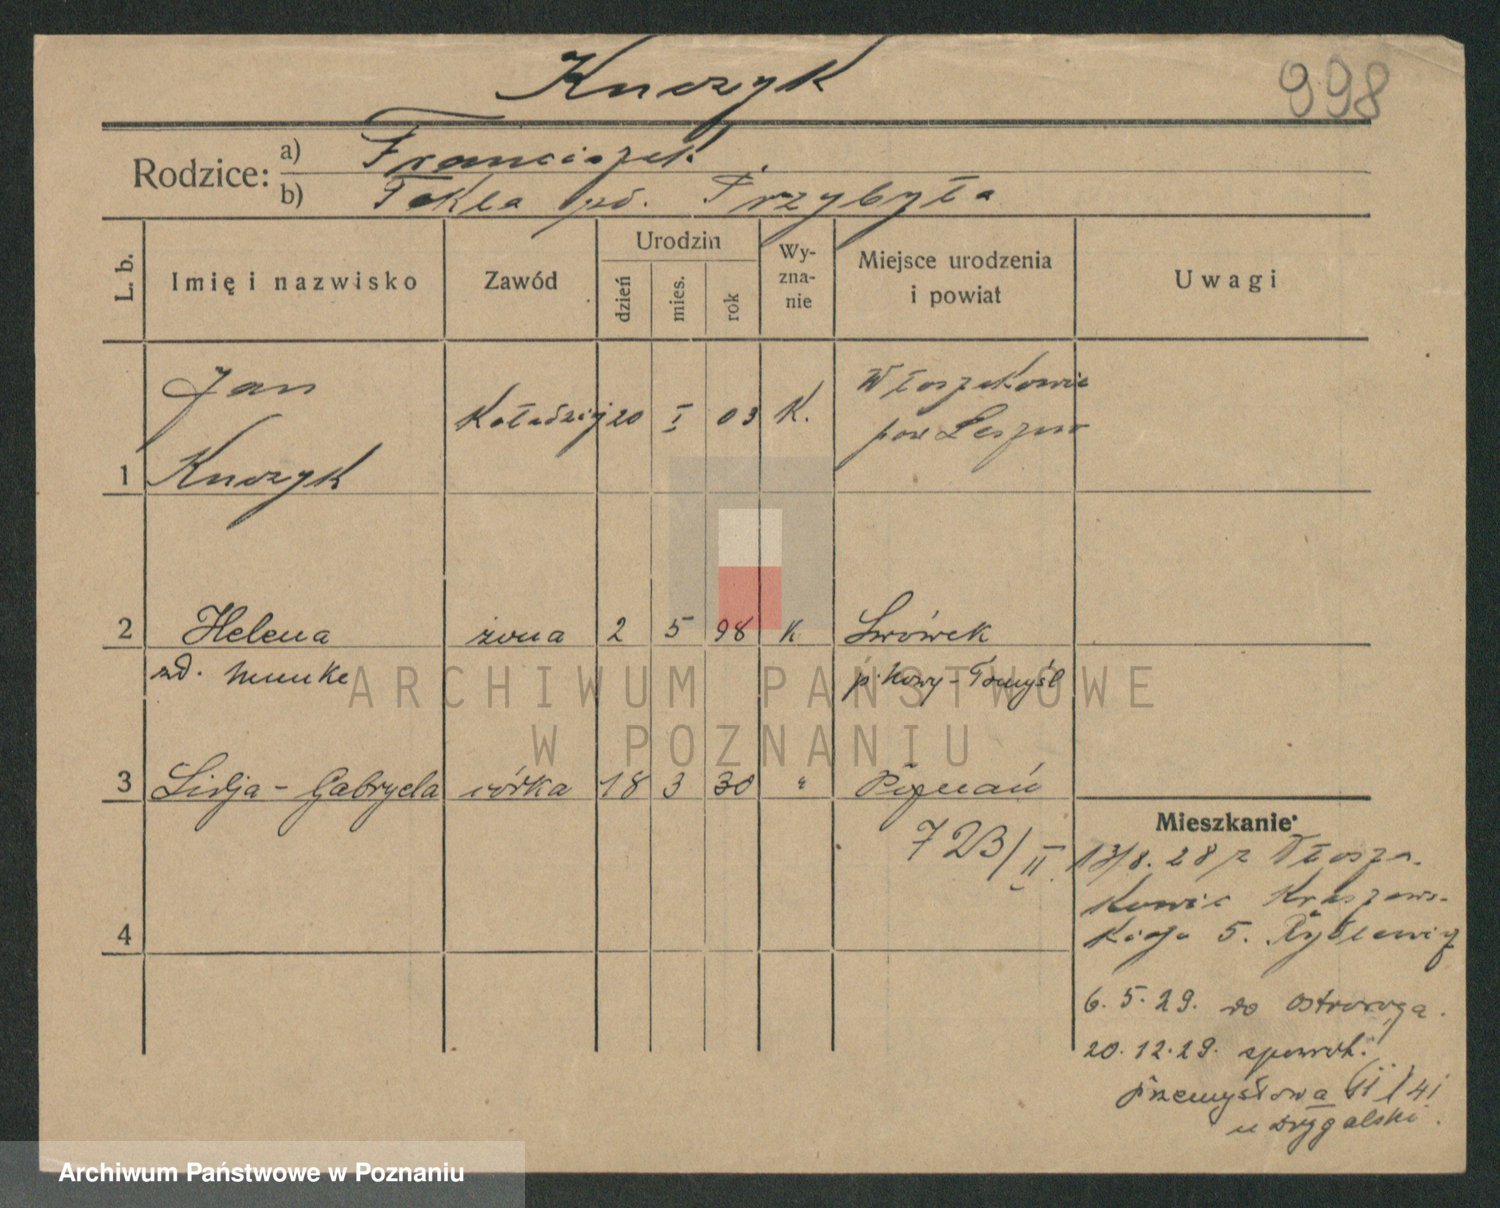 Kuczyk
998
Rodzice: a) Franciszek
b) Tekla zd. Przybyła
L. b.
Imię i nazwisko
Zawód
Urodzin
dzień
mies.
rok
Wy-
zna-
nie
Miejsce urodzenia
i powiat
Uwagi
Jan
Kołodziej 20 I 03 K.
Włoszakowic
pow Leszno
1 Kuczyk
2 Helena żona 2 5 98 K Lwówek
zd. Munke p. Nowy-Tomyśl
ARCHIWUM PAŃSTWOWE
W POZNANIU
3 Lidja-Gabryela córka 18 3 30 " Poznań
723/II
Mieszkanie
13/8. 28 z Włosza-
kowic Kraszews-
kiego 5.
4
6. 5. 29. do Ostroroga.
20. 12. 29. spowrot.
Przemysłowa 41
u Drygalski.
Archiwum Państwowe w Poznaniu